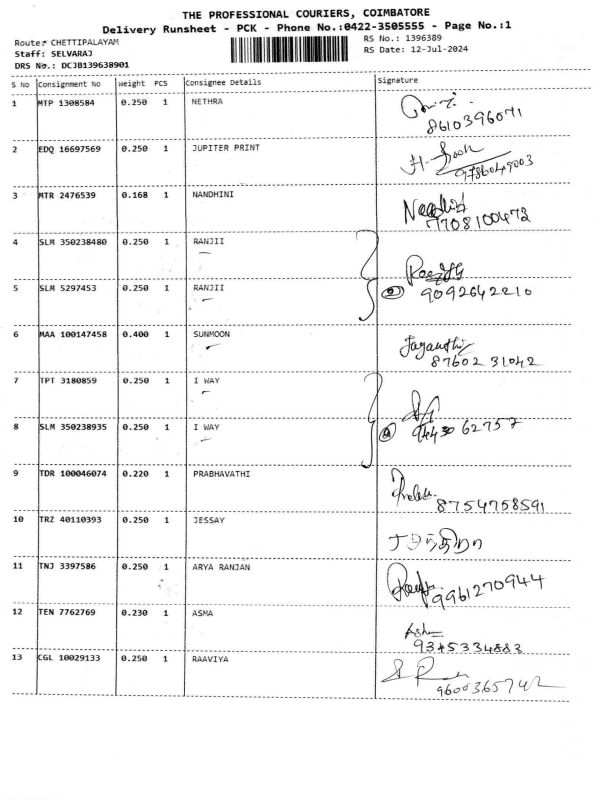 THE PROFESSIONAL COURIERS, COIMBATORE
Delivery Runsheet - PCK - Phone No.:0422-3505555 - Page No.:1
Route: CHETTIPALAYAM
RS No.: 1396389
Staff: SELVARAJ
RS Date: 12-Jul-2024
DRS No.: DCJB139638901
S No Consignment No Weight PCS Consignee Details Signature
1 MTP 1308584 0.250 1 NETHRA
8610396071
2 EDQ 16697569 0.250 1 JUPITER PRINT
9786049003
3 MTR 2476539 0.168 1 NANDHINI
7708100473
4 SLM 350238480 0.250 1 RANJII
5 SLM 5297453 0.250 1 RANJII
② 9092642210
6 MAA 100147458 0.400 1 SUNMOON
Jayanthi
87602 31042
7 TPT 3180859 0.250 1 I WAY
8 SLM 350238935 0.250 1 I WAY
94430 62757
9 TDR 100046074 0.220 1 PRABHAVATHI
8754758591
10 TRZ 40110393 0.250 1 JESSAY
11 TNJ 3397586 0.250 1 ARYA RANJAN
9961270944
12 TEN 7762769 0.230 1 ASMA
9345334883
13 CGL 10029133 0.250 1 RAAVIYA
9600365742